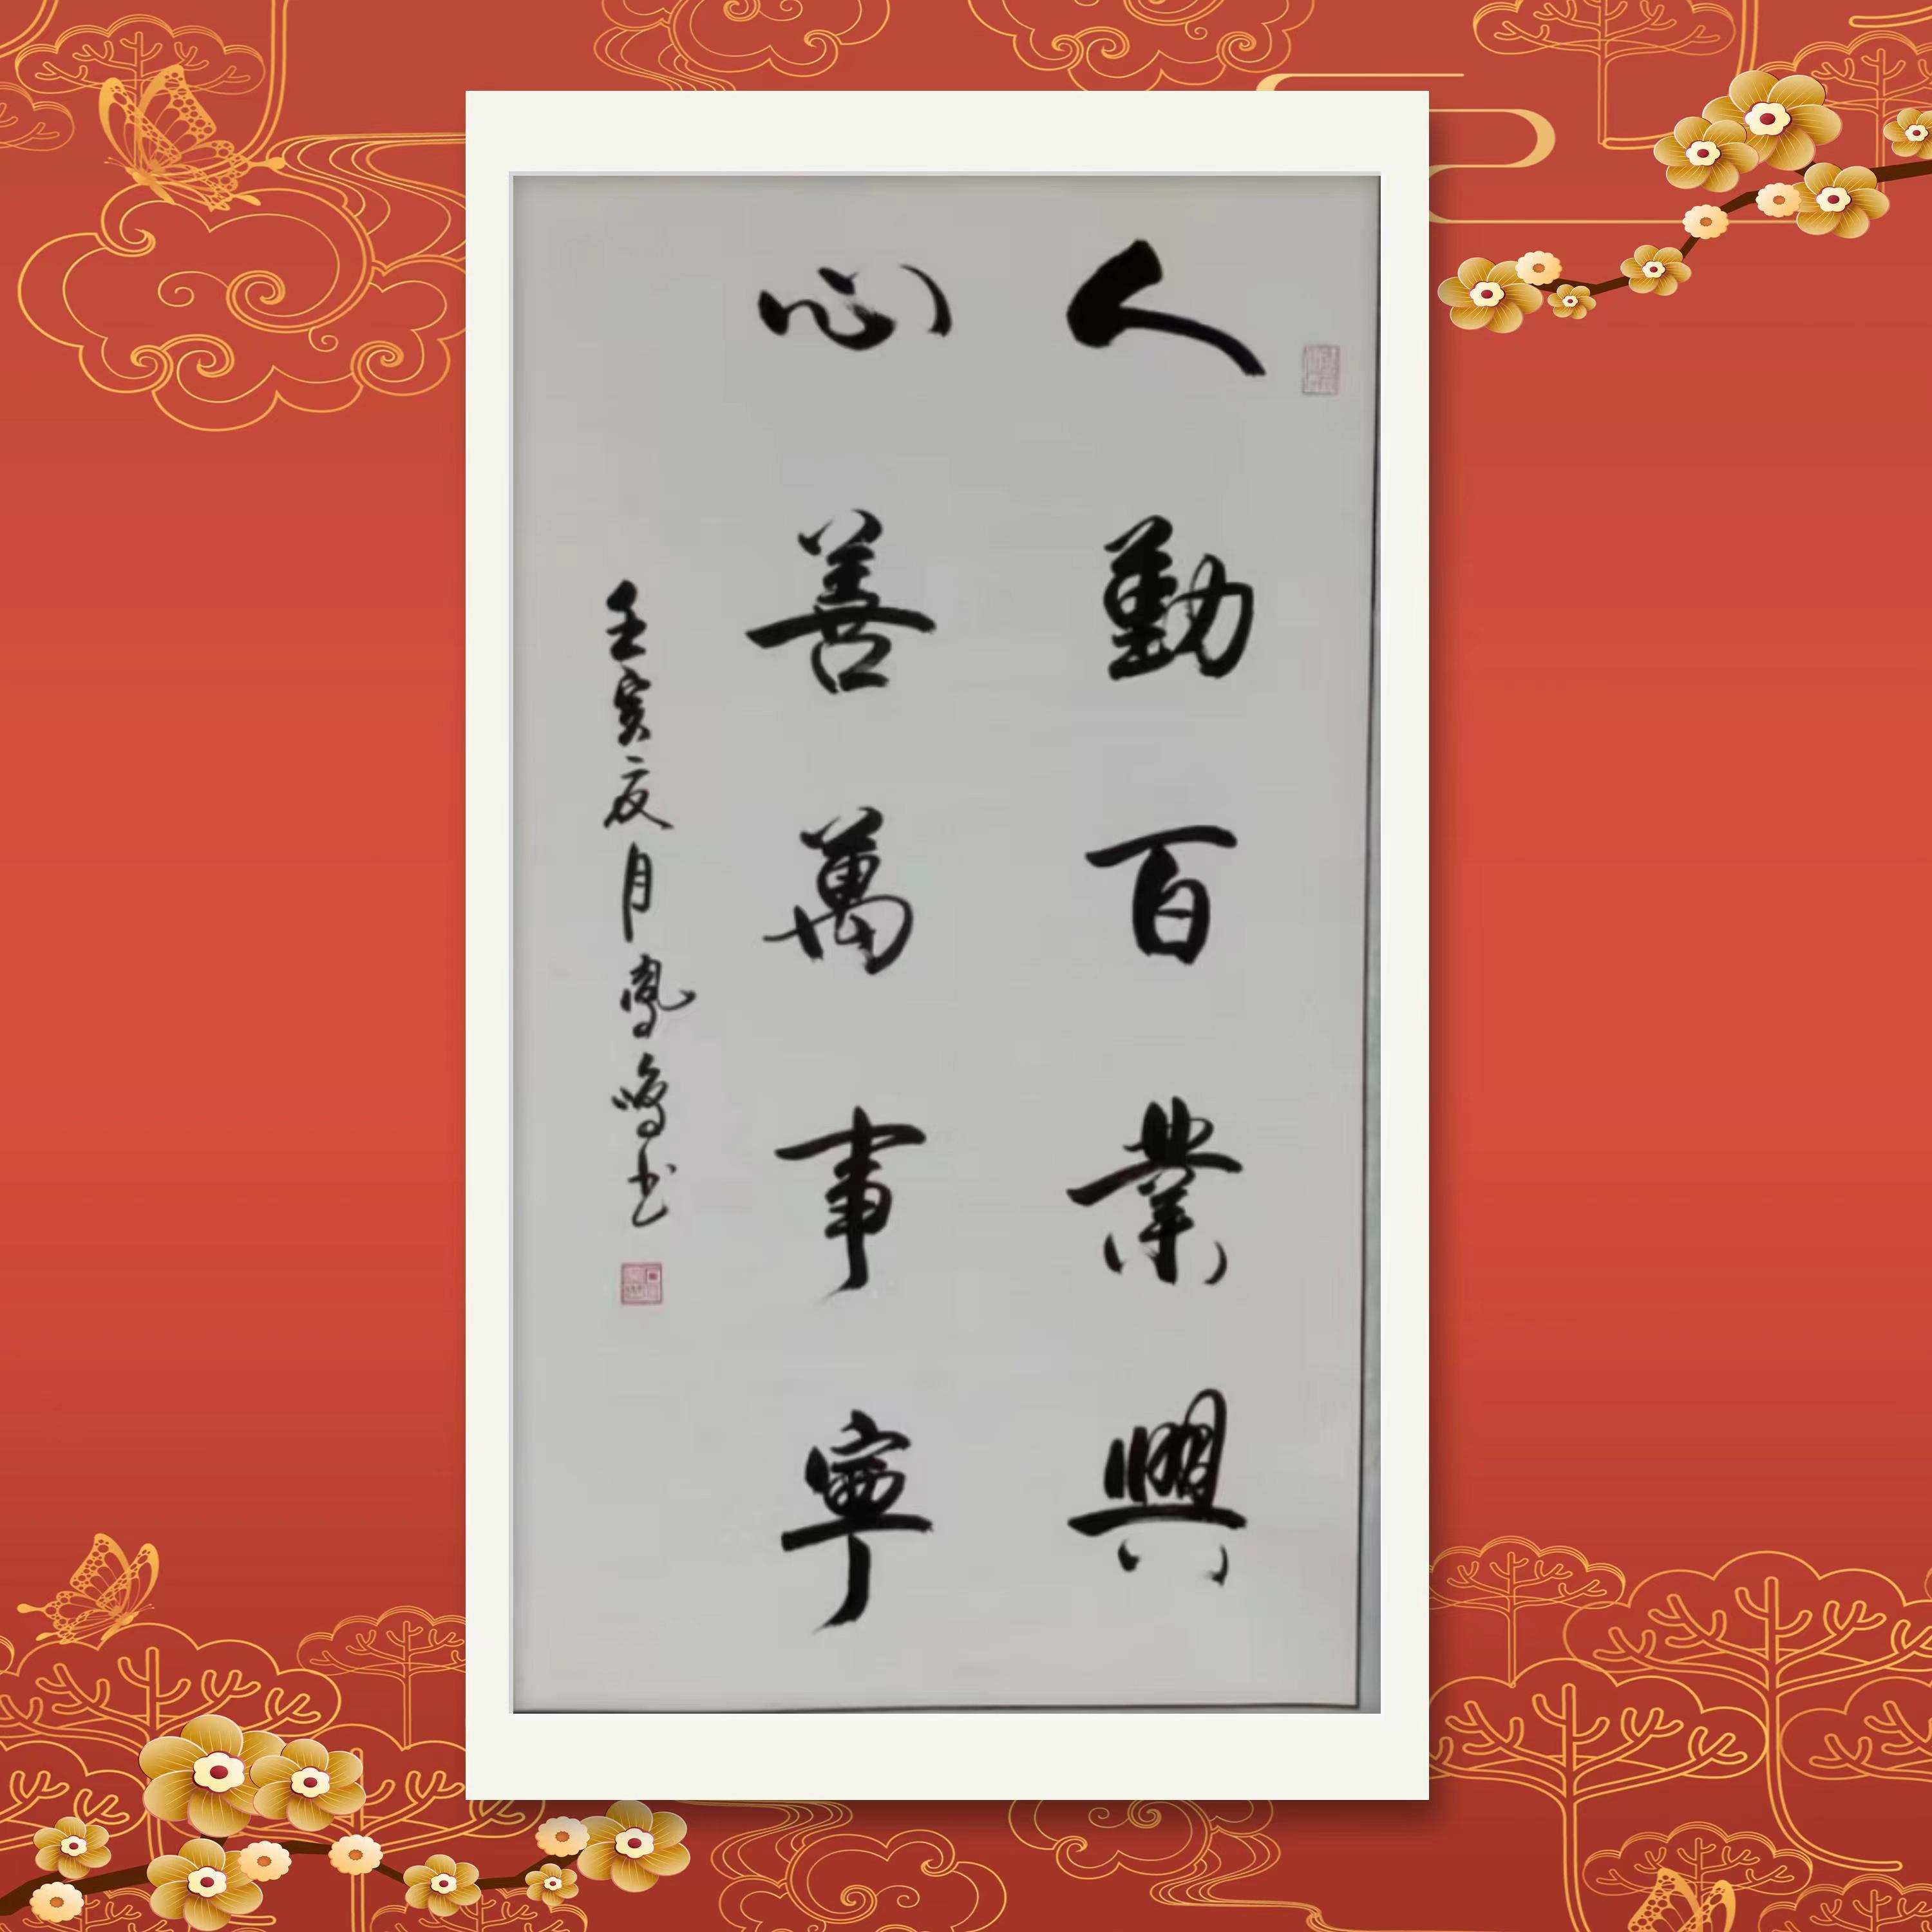 人勤百業興
心善萬事寧
壬寅夏月鳳鳴书